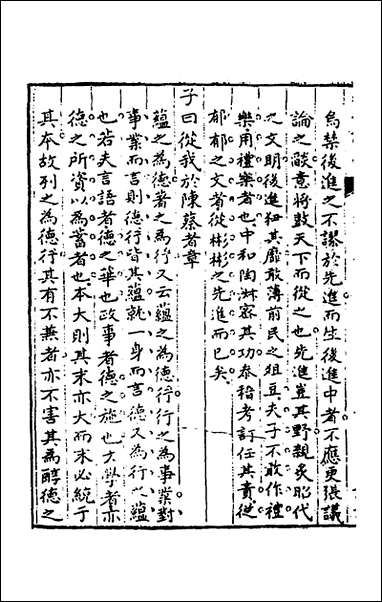 烏禁後進之不謬於先進而生後進中者不應更張議
論之敝意將數天下而從之也先進豈其野親炙昭代
之文明後進狃其靡敢薄前民之俎豆夫子不敢作禮
樂用禮樂者也中和陶淑寄其功泰稽考訂任其責從
郁郁之文者從彬彬之先進而已矣
子曰從我於陳蔡者章
蘊之為德著之為行又云蘊之為德行行之為事業對
事業而言則德行皆其蘊就一身而言德又為行之蘊
也若夫言語者德之華也政事者德之施也文學者亦
德之所資以為蓄者也本大則其末亦大而末必統于
其本故列之為德行其有不兼者亦不害其為醇德之